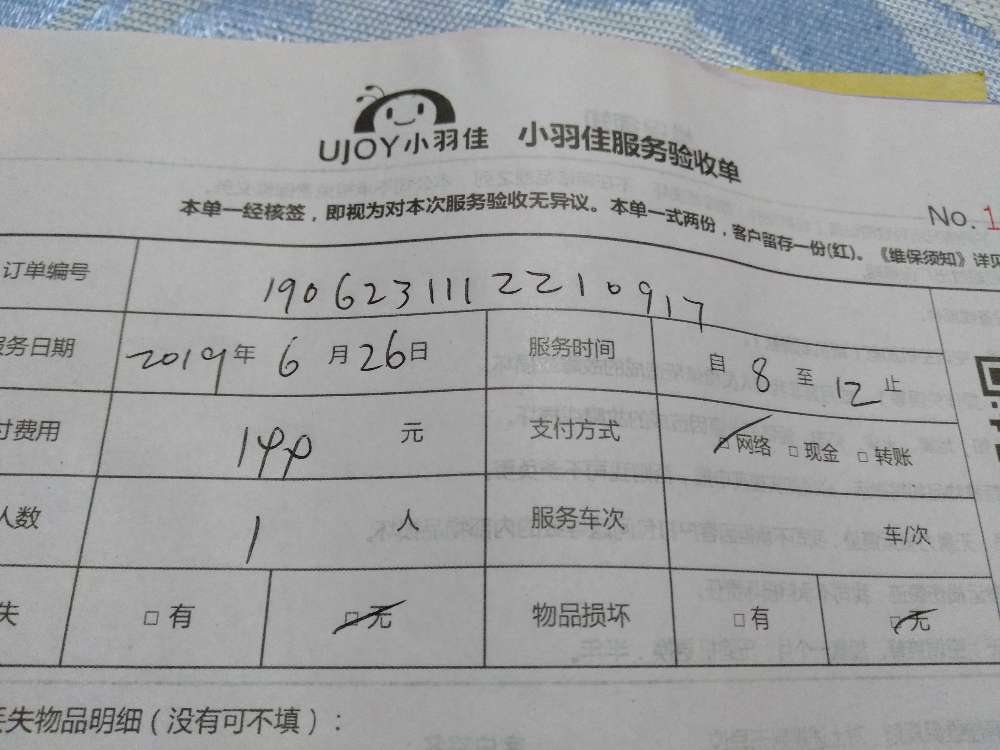 UJOY小羽佳 小羽佳服务验收单
本单一经核签，即视为对本次服务验收无异议。本单一式两份，客户留存一份(红)。《维保须知》详见
No.1
订单编号 1906231112210917
服务日期 2019年 6月26日 服务时间 自8至12止
付费用 144元 支付方式 □网络 □现金 □转账
人数 1人 服务车次 车/次
失 □有 □无 物品损坏 □有 □无
丢失物品明细（没有可不填）：